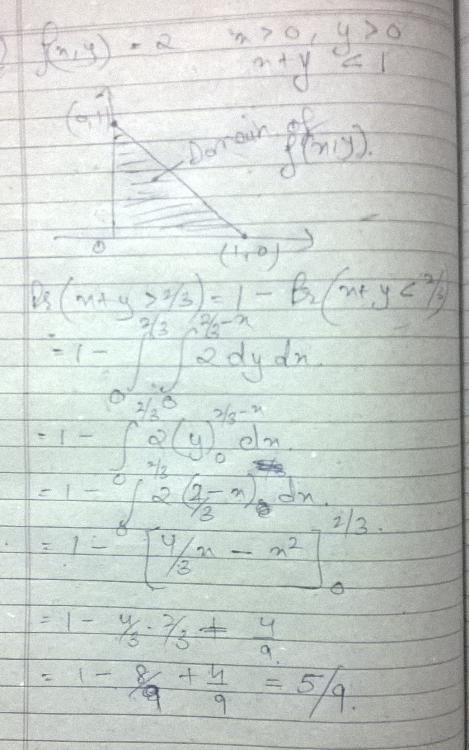 f(x,y) = 2   x > 0, y > 0
x+y < 1
(0,1)
Domain of
f(x,y).
0
(1,0)
Pr(x+y > 2/3) = 1 - Pr(x+y < 2/3)
= 1 - ∫₀^{2/3} ∫₀^{2/3-x} 2 dy dx.
= 1 - ∫₀^{2/3} 2 (y)₀^{2/3-x} dx.
= 1 - ∫₀^{2/3} 2 (2/3 - x) dx.
= 1 - [4/3 x - x²]₀^{2/3}.
= 1 - 4/3 · 2/3 + 4/9.
= 1 - 8/9 + 4/9 = 5/9.